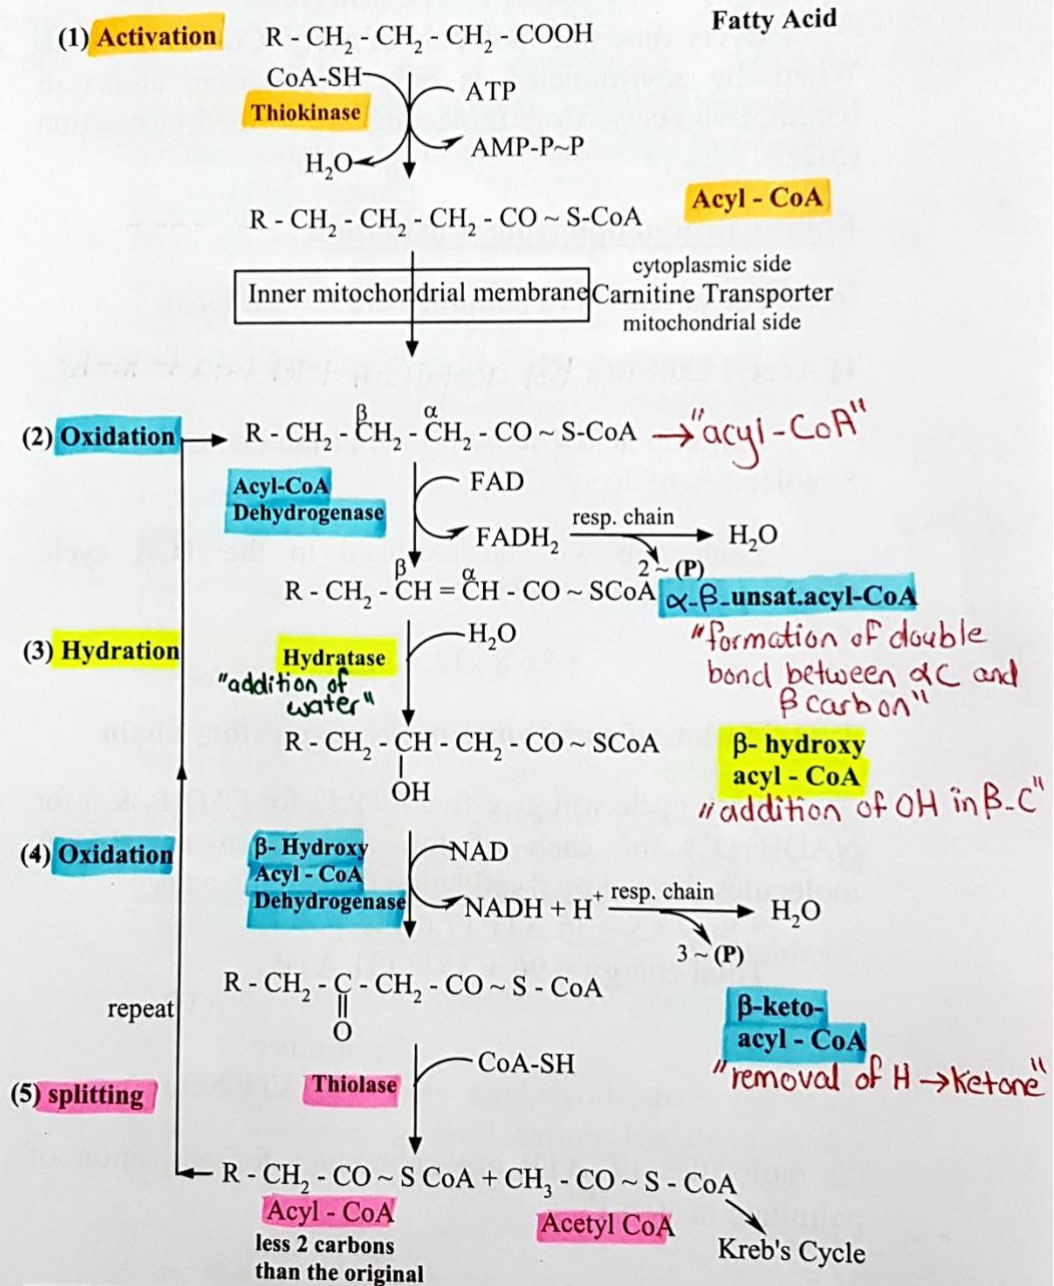 Fatty Acid
(1) Activation R - CH₂ - CH₂ - CH₂ - COOH
CoA-SH ATP
Thiokinase
H₂O AMP-P~P
Acyl - CoA
R - CH₂ - CH₂ - CH₂ - CO ~ S-CoA
cytoplasmic side
Inner mitochondrial membrane Carnitine Transporter
mitochondrial side
β α
(2) Oxidation R - CH₂ - CH₂ - CH₂ - CO ~ S-CoA → "acyl-CoA"
Acyl-CoA
Dehydrogenase
FAD
FADH₂ resp. chain H₂O
2 ~ (P)
β α
R - CH₂ - CH = CH - CO ~ SCoA α-β-unsat.acyl-CoA
"formation of double
bond between αC and
β carbon"
(3) Hydration
Hydratase
H₂O
"addition of
water"
R - CH₂ - CH - CH₂ - CO ~ SCoA
OH
β- hydroxy
acyl - CoA
"addition of OH in β-C"
(4) Oxidation
β- Hydroxy
Acyl - CoA
Dehydrogenase
NAD
NADH + H⁺ resp. chain H₂O
3 ~ (P)
R - CH₂ - C - CH₂ - CO ~ S - CoA
O
β-keto-
acyl - CoA
"removal of H → Ketone"
repeat
(5) splitting
Thiolase
CoA-SH
R - CH₂ - CO ~ S CoA + CH₃ - CO ~ S - CoA
Acyl - CoA
less 2 carbons
than the original
Acetyl CoA
Kreb's Cycle